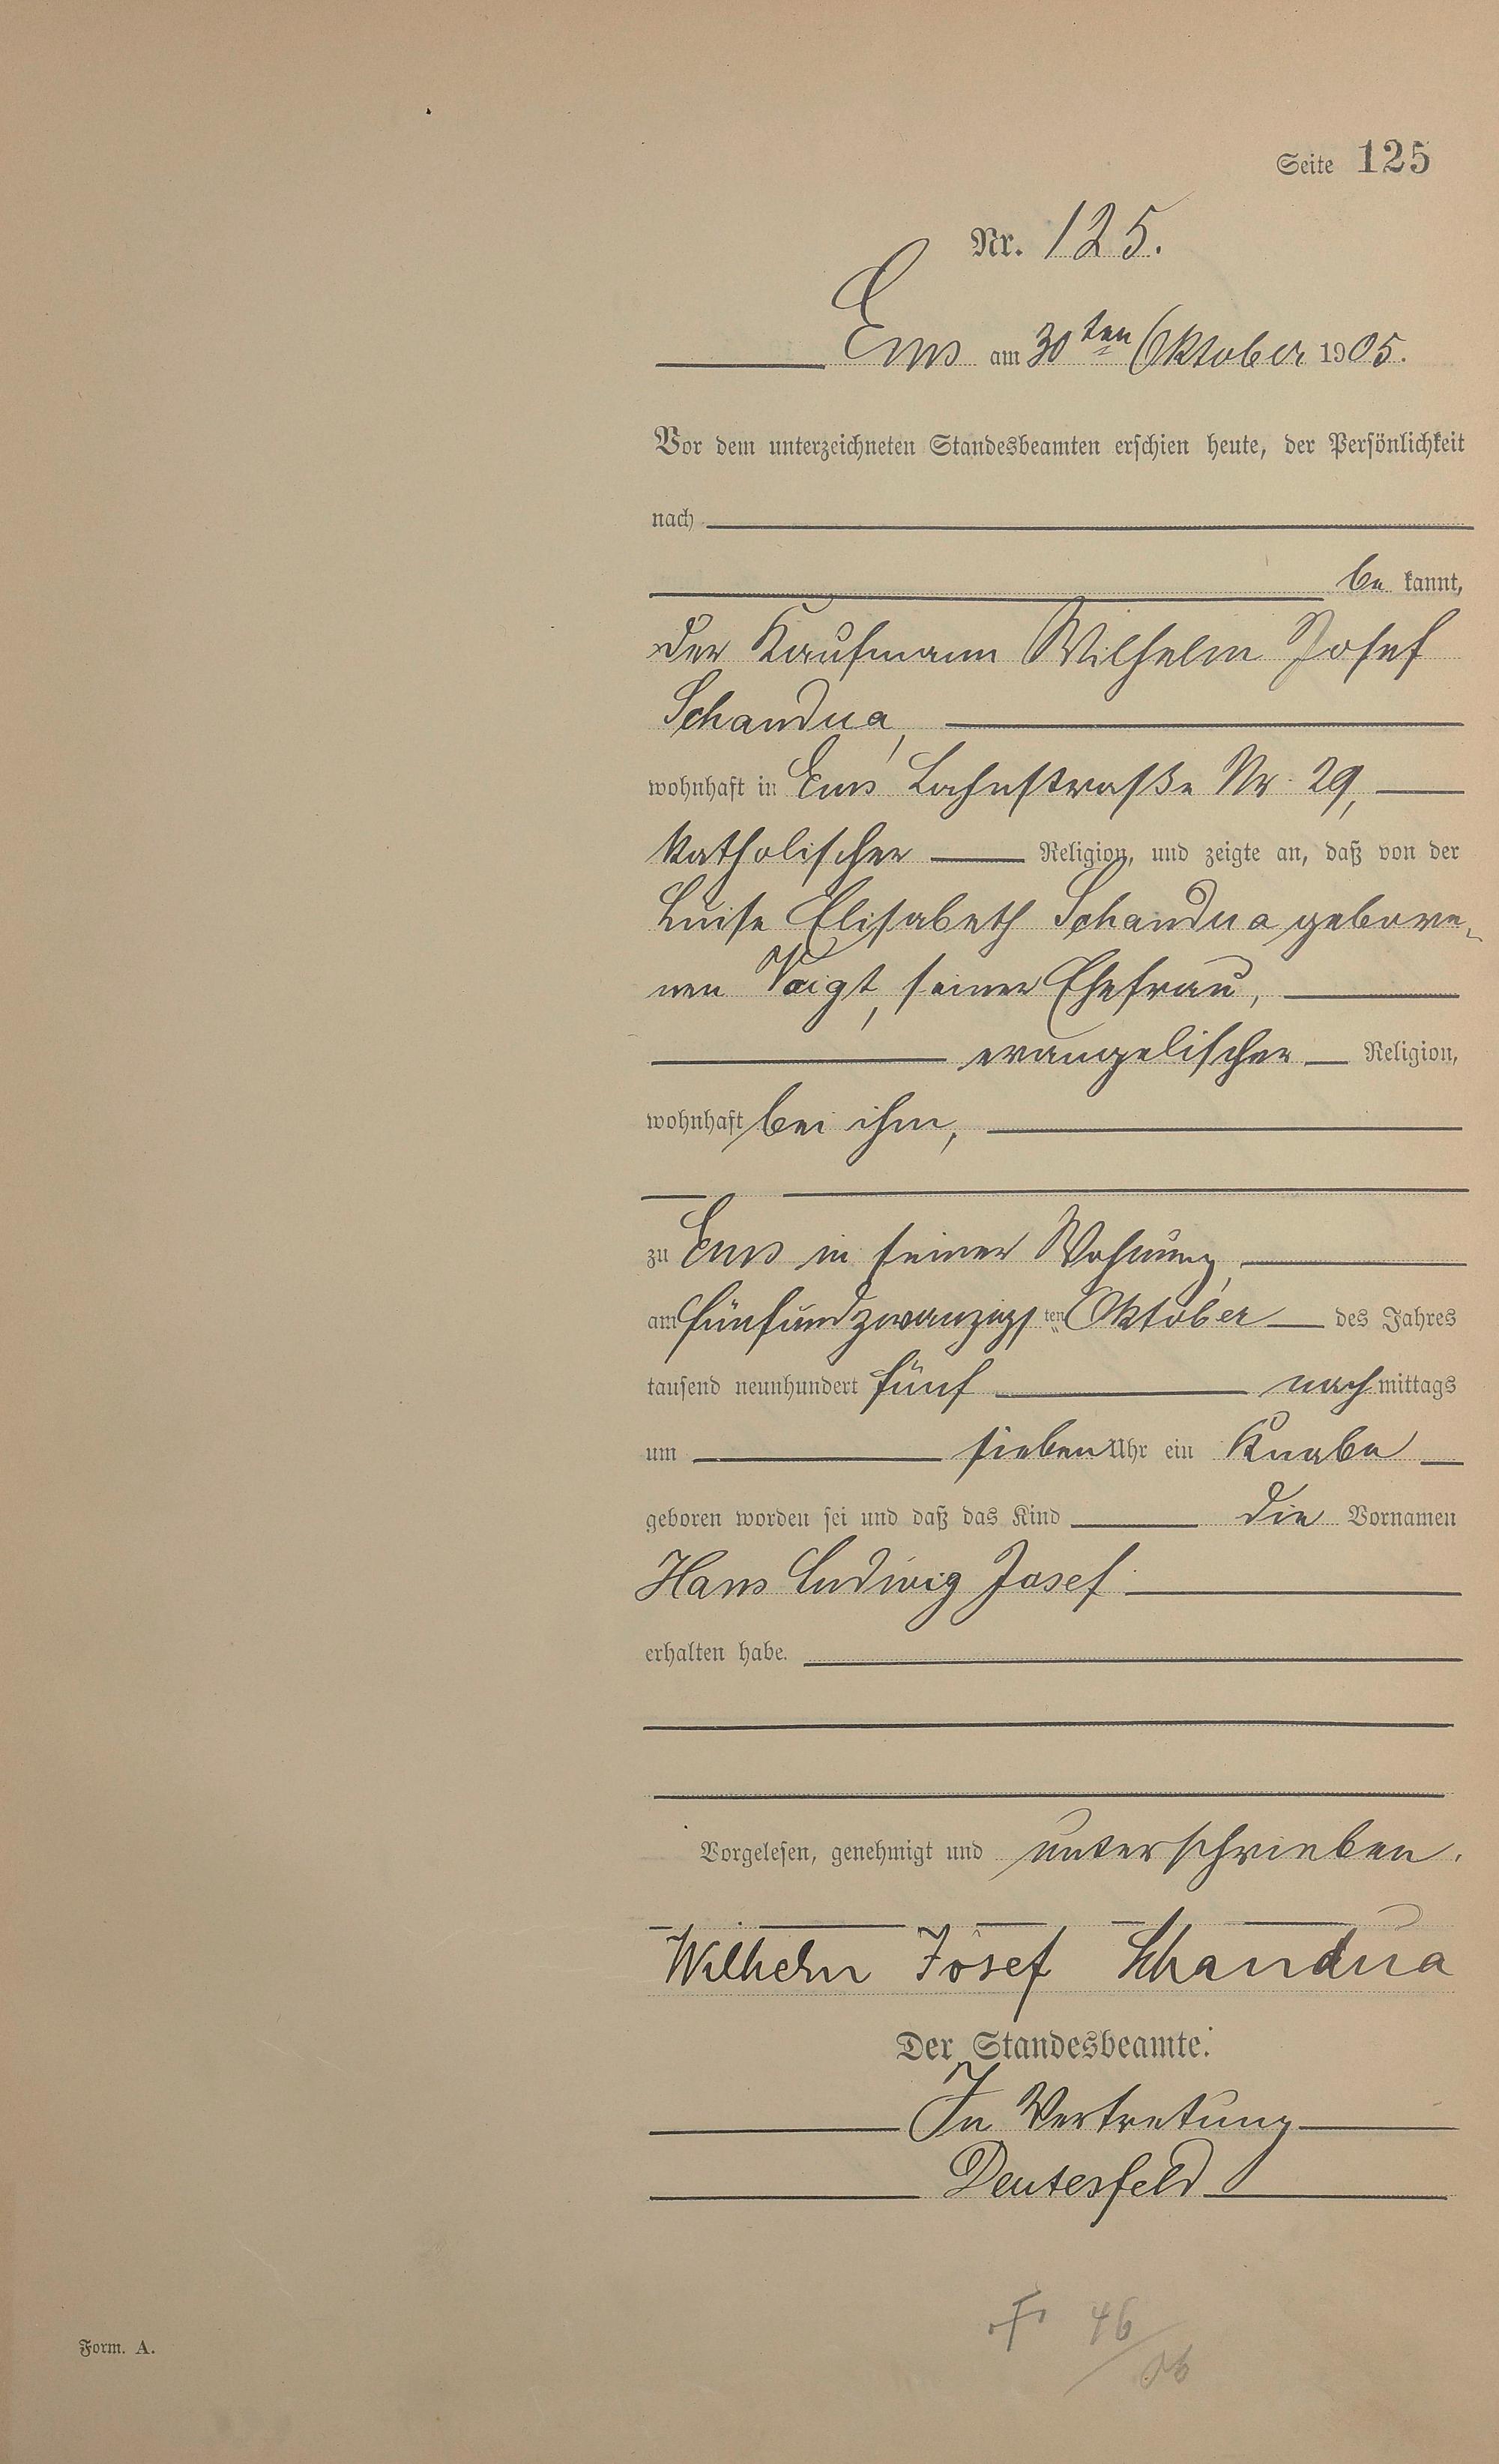 Seite 125
Nr. 125.
Ems am 30ten Oktober 1905.
Vor dem unterzeichneten Standesbeamten erschien heute, der Persönlichkeit
nach
be kannt,
der Kaufmann Wilhelm Josef
Schandua,
wohnhaft in Ems Lahnstraße Nr. 29,
katholischer Religion, und zeigte an, daß von der
Luise Elisabeth Schandua gebore-
nen Voigt, seiner Ehefrau,
evangelischer Religion,
wohnhaft bei ihm,
zu Ems in seiner Wohnung,
am fünfundzwanzigsten Oktober des Jahres
tausend neunhundert fünf nachmittags
um sieben Uhr ein Knabe
geboren worden sei und daß das Kind die Vornamen
Hans Ludwig Josef
erhalten habe.
Vorgelesen, genehmigt und unterschrieben.
Wilhelm Josef Schandua
Der Standesbeamte.
In Vertretung
Deutesfeld
46
06
Form. A.